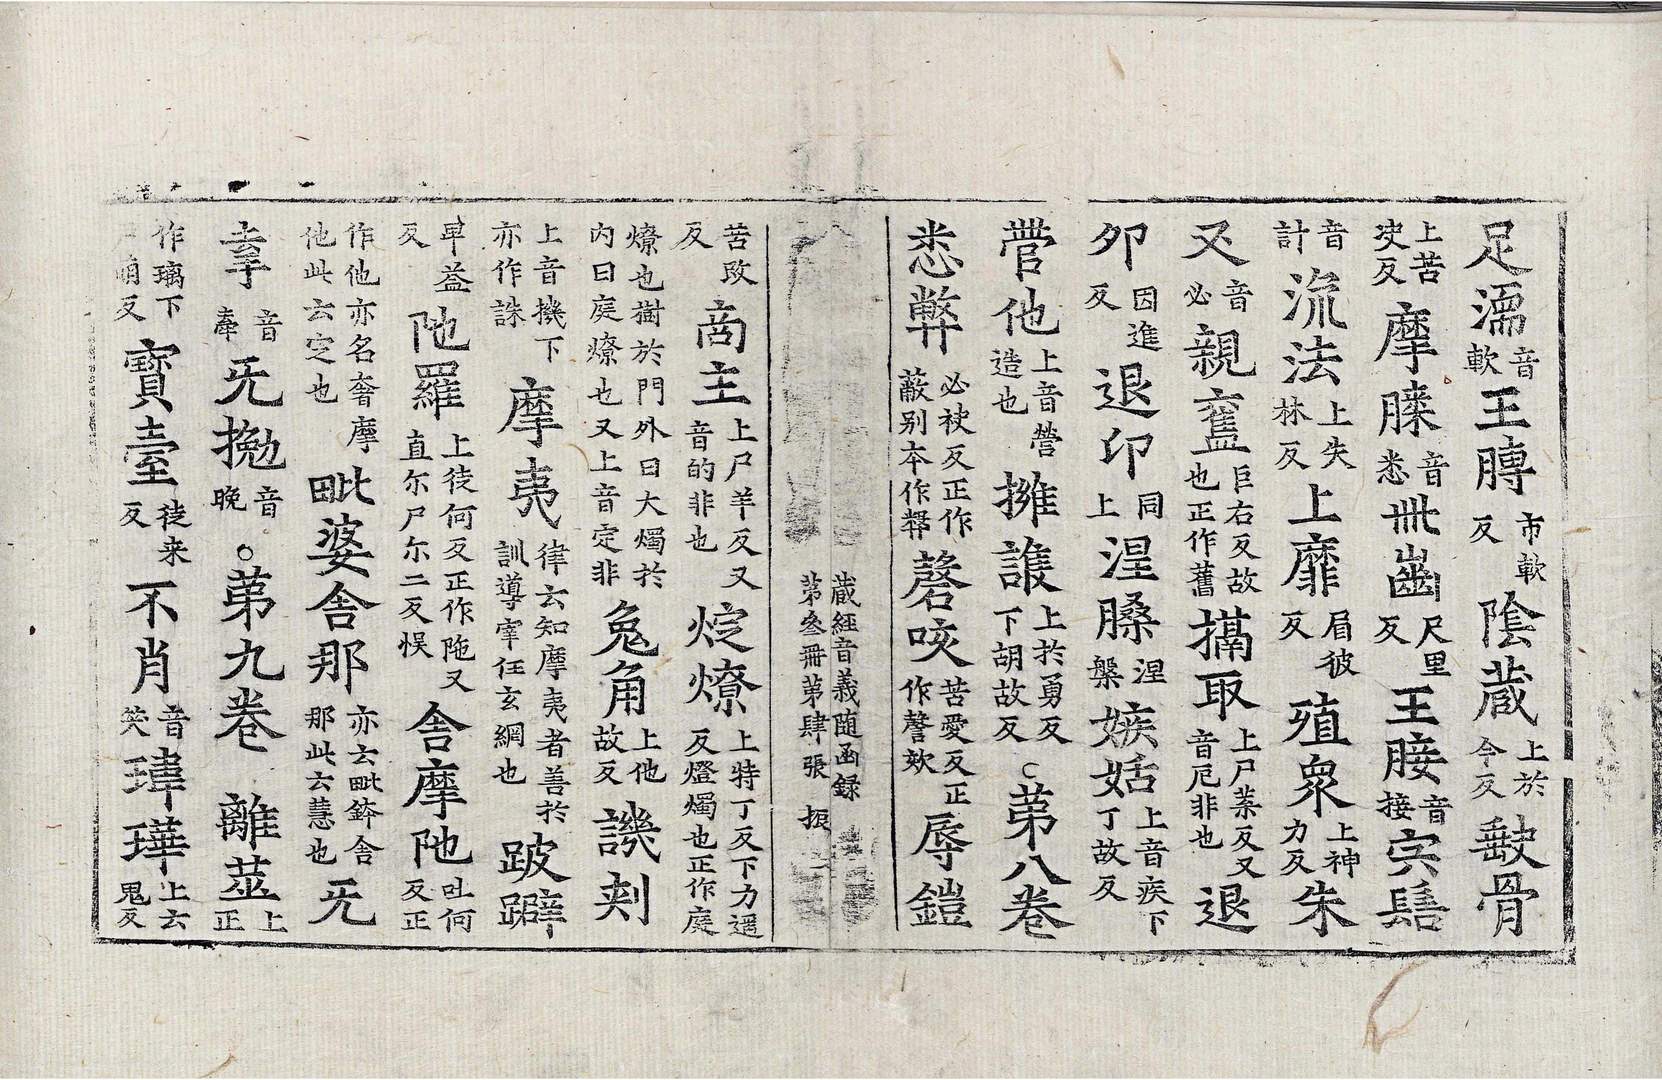 足濡音軟王膊市軟反陰蔵上於今反皷骨
上苦決反摩𦟛音悉卌齒尺里反王脞音接宍髻
音計流法上失林反上靡眉彼反殖衆上神力反朱
又音必親舊巨右反故也正作舊搹取上尸葉反又音戹非也退
夘因進反退印同上涅槃涅槃嫉妬上音疾下丁故反
營他上音營造也擁護上於勇反下胡故反○苐八卷
悉弊必袂反正作蔽别夲作弊磬咳苦愛反正作謦欬辱鎧
蔵經音義随函録
第叄冊苐肆張 振
苦改反商主上尸羊反又音的非也烶燎上特丁反下力遥反燈燭也正作庭
燎也樹於門外曰大燭於内曰庭燎也又上音定非兔角上他故反譏刾
上音機下亦作誅摩夷律云知摩夷者善於訓導宰任玄綱也跛躃
卑益反陁羅上徒何反正作陁又直尓尸尓二反悮舍摩陁吐何反正
作他亦名奢摩他此云定也毗婆舍那亦云毗鉢舍那此云慧也旡
㚖音奉旡㧾音晚○苐九卷 離䒠上正
作璃下反寳臺徒来反不肖音笑瑋璍上云鬼反